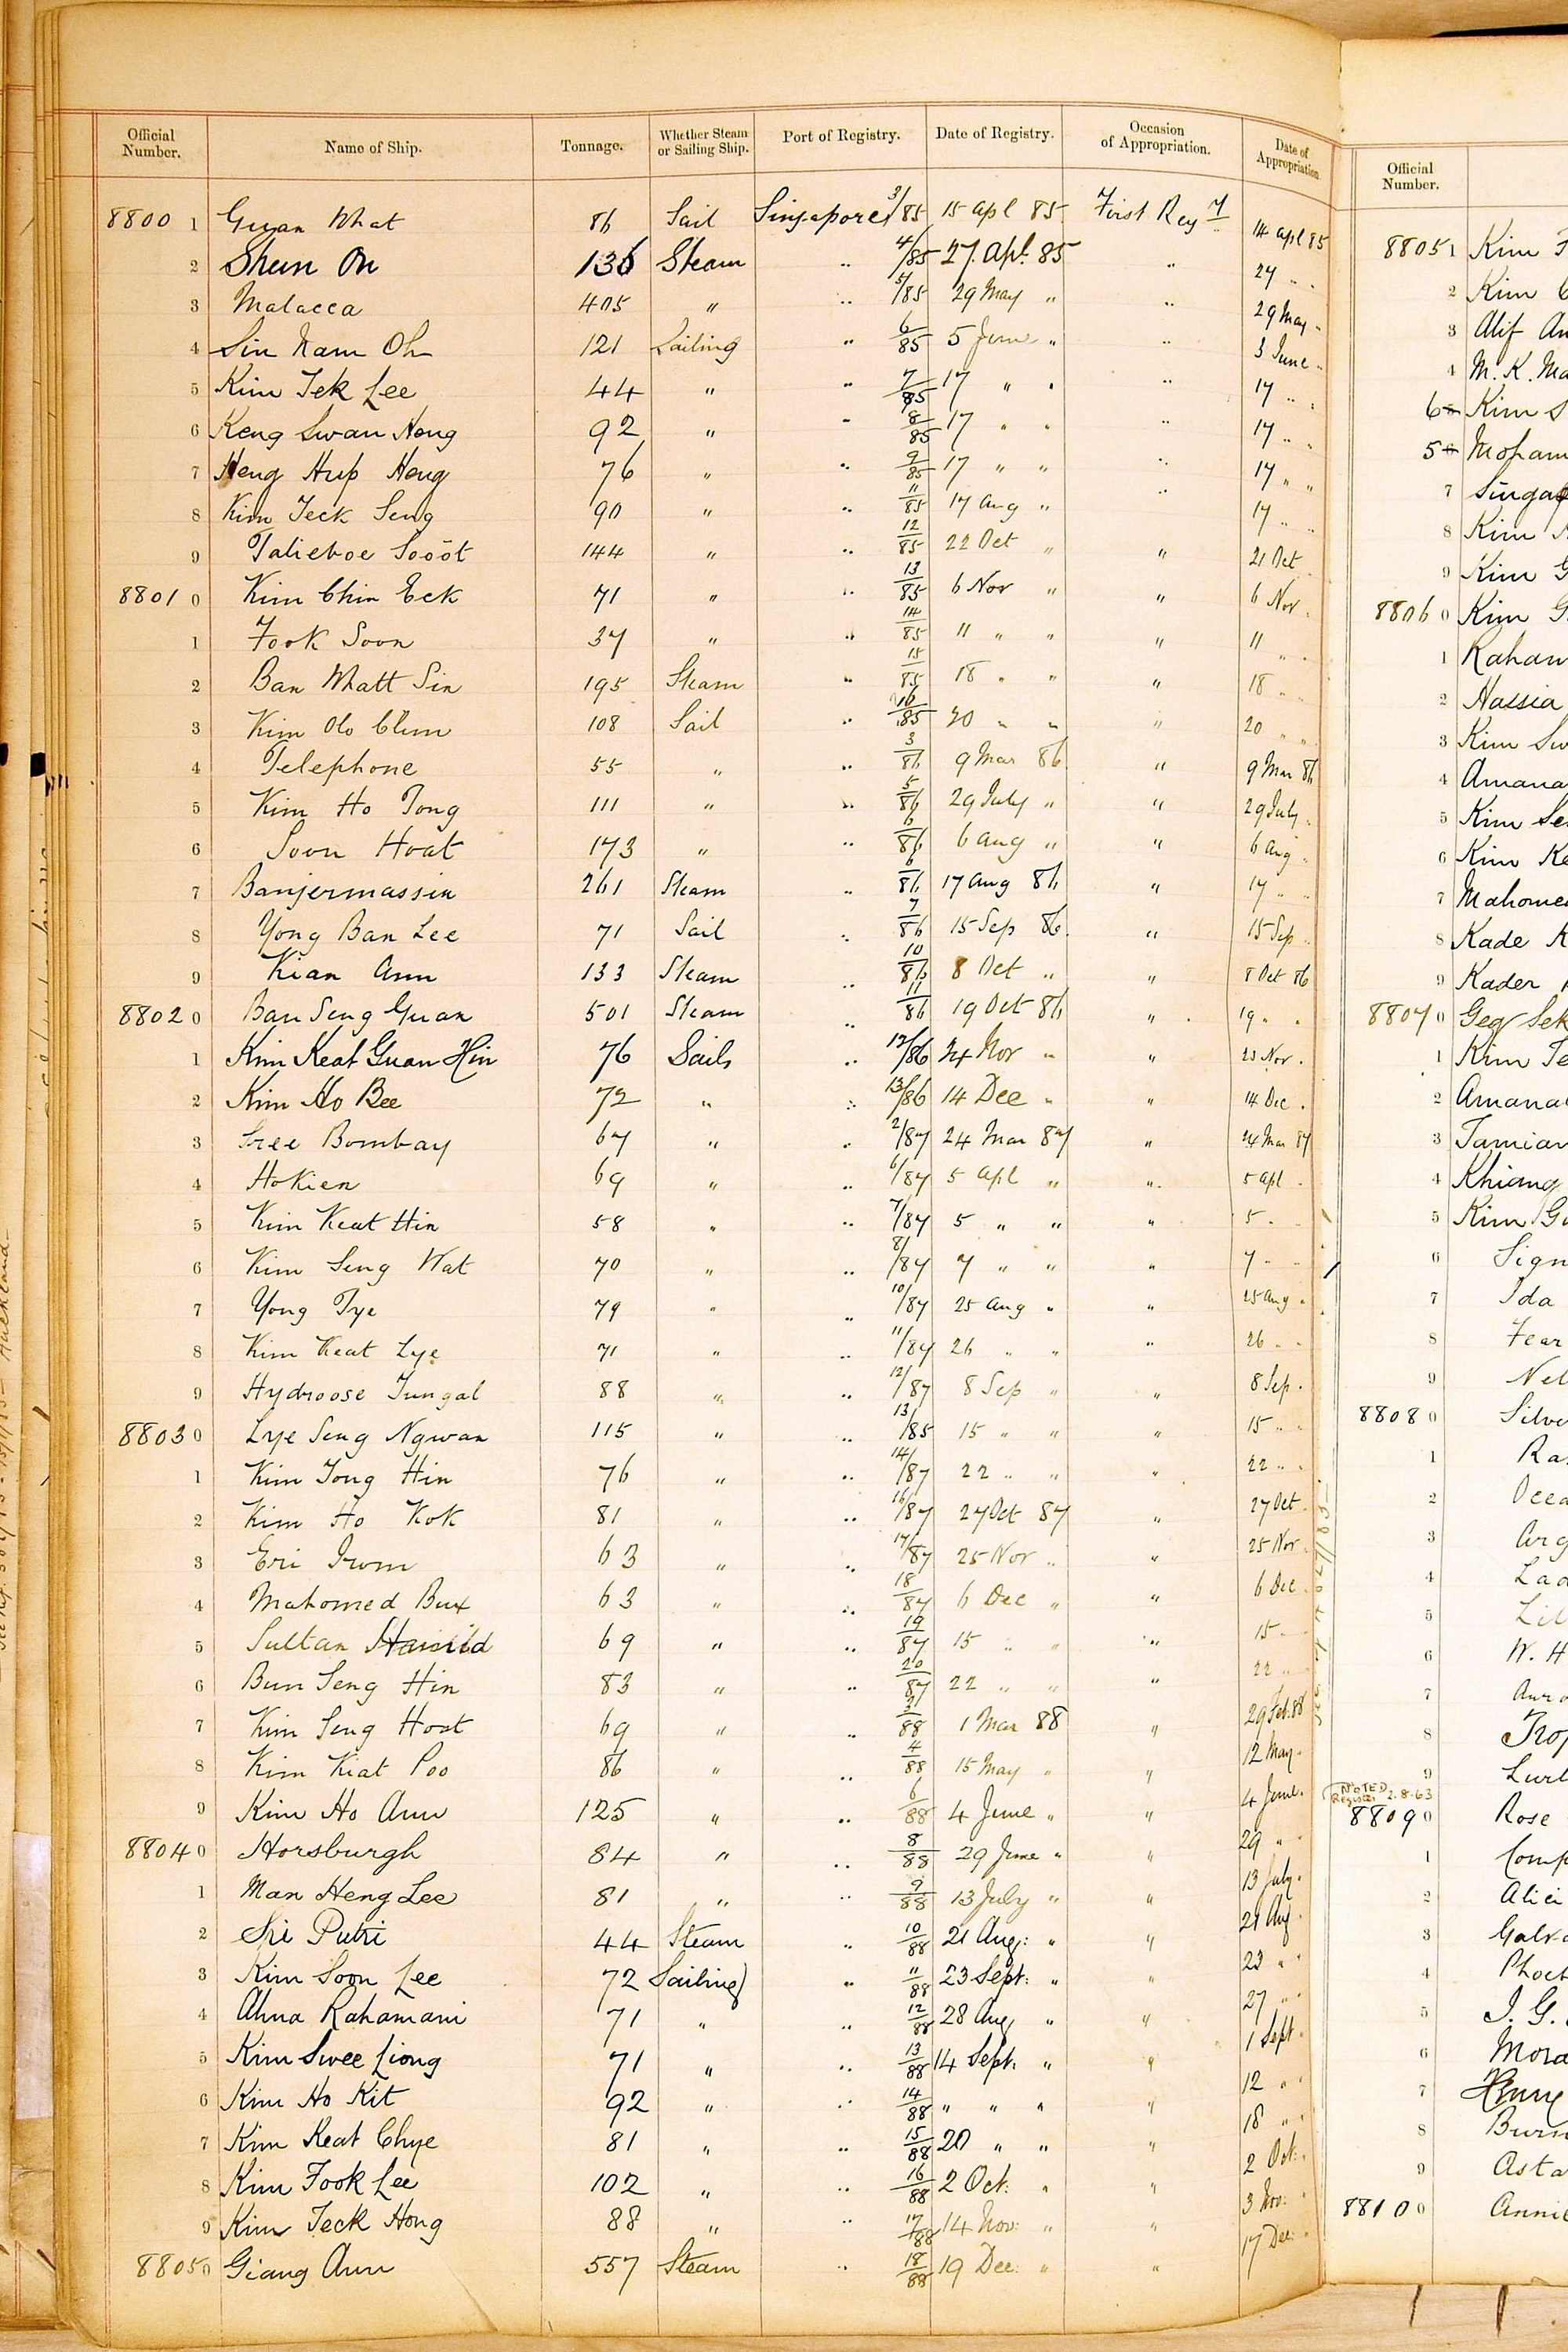 Official Number. Name of Ship. Tonnage. Whether Steam or Sailing Ship. Port of Registry. Date of Registry. Occasion of Appropriation. Date of Appropriation
8800 1 Guan What 86 Sail Singapore 3/85 15 Apl 85 First Reg 14 Apl 85
2 Shun On 136 Steam " 4/85 27 Apl. 85 " 27 " "
3 Malacca 405 " " 5/85 29 May " " 29 May "
4 Sin Nam Oh 121 Sailing " 6/85 5 June " " 3 June "
5 Kim Tek Lee 44 " " 7/85 17 " " " 17 " "
6 Keng Swan Hong 92 " " 8/85 17 " " " 17 " "
7 Heng Hup Heng 76 " " 9/85 17 " " " 17 " "
8 Kim Teck Seng 90 " " 11/85 17 Aug " " 17 " "
9 Talieboe Sooöt 144 " " 12/85 22 Oct " " 21 Oct
8801 0 Kim Chin Eck 71 " " 13/85 6 Nov " " 6 Nov.
1 Fook Soon 37 " " 14/85 11 " " " 11 " "
2 Ban Whatt Sin 195 Steam " 15/85 18 " " " 18 " "
3 Kim Olo Chun 108 Sail " 16/85 20 " " " 20 " "
4 Telephone 55 " " 3/86 9 Mar 86 " 9 Mar 86
5 Kim Ho Tong 111 " " 5/86 29 July " " 29 July "
6 Soon Hoat 173 " " 6/86 6 Aug " " 6 Aug "
7 Banjermassin 261 Steam " 6/86 17 Aug 86 " 17 " "
8 Yong Ban Lee 71 Sail " 7/86 15 Sep 86. " 15 Sep "
9 Kian Ann 133 Steam " 10/86 8 Oct " " 8 Oct 86
8802 0 Ban Seng Guan 501 Steam " 11/86 19 Oct 86 " 19 " "
1 Kim Keat Guan Hin 76 Sails " 12/86 24 Nov " " 23 Nov.
2 Kim Ho Bee 72 " " 13/86 14 Dec " " 14 Dec.
3 Sree Bombay 67 " " 2/87 24 Mar 87 " 24 Mar 87
4 Hokien 69 " " 6/87 5 Apl " " 5 Apl "
5 Kim Keat Hin 58 " " 7/87 5 " " " 5 " "
6 Kim Seng Wat 70 " " 8/87 7 " " " 7 " "
7 Yong Tye 79 " " 10/87 25 Aug " " 25 Aug "
8 Kim Keat Lye 71 " " 11/87 26 " " " 26 " "
9 Hydroose Tungal 88 " " 12/87 8 Sep " " 8 Sep.
8803 0 Lye Seng Ngwan 115 " " 13/85 15 " " " 15 " "
1 Kim Tong Hin 76 " " 14/87 22 " " " 22 " "
2 Kim Ho Kok 81 " " 16/87 27 Oct 87 " 27 Oct "
3 Eri Irom 63 " " 17/87 25 Nov " " 25 Nov "
4 Mahomed Bux 63 " " 18/87 6 Dec " " 6 Dec "
5 Sultan 69 " " 19/87 15 " " " 15 "
6 Bun Seng Hin 83 " " 20/87 22 " " " 22 "
7 Kim Seng Hoat 69 " " 88 1 Mar 88 " 29 Feb. 88
8 Kim Kiat Poo 86 " " 4/88 15 May " " 12 May "
9 Kim Ho Ann 125 " " 6/88 4 June " " 4 June "
8804 0 Horsburgh 84 " " 8/88 29 June " " 29 " "
1 Man Heng Lee 81 " " 9/88 13 July " " 13 July "
2 Sri Putri 44 Steam " 10/88 21 Aug: " " 21 Aug "
3 Kim Soon Lee 72 Sailing " 11/88 23 Sept: " " 23 " "
4 Ahna Rahamani 71 " " 12/88 28 Aug " " 27 " "
5 Kim Swee Liong 71 " " 13/88 14 Sept: " " 1 Sept "
6 Kim Ho Kit 92 " " 14/88 " " " " 12 " "
7 Kim Keat Chye 81 " " 15/88 20 " " " 18 " "
8 Kim Fook Lee 102 " " 16/88 2 Oct: " " 2 Oct: "
9 Kim Teck Hong 88 " " 17/88 14 Nov: " " 3 Nov: "
8805 0 Giang Ann 557 Steam " 18/88 19 Dec: " " 17 Dec: "
Official Number.
8805 1 Kim
2 Kim
3 Alif
4 M. K.
6 Kim
5
7
8 Kim
9 Kim
8806 0 Kim
1
2 Hassia
3 Kim
4
5 Kim
6 Kim
7
8 Kade
9 Kader
8807 0
1 Kim
2
3
4 Khiang
5 Kim
6
7 Ida
8
9
8808 0
1
2
3
4
5
6 W. H
7
8
9
NOTED Register 2.8.63
8809 0 Rose
1
2
3
4
5 J. G.
6
7
8
9
8810 0